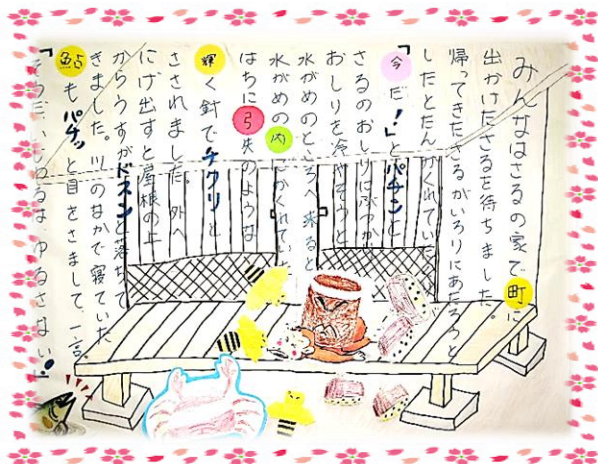 みんなはさるの家で町に
出かけたさるを待ちました。
帰ってきたさるがいろりにあたろうと
したとたんかくれていた
「今だ!」とパチンと
さるのおしりにぶつか
おしりを冷やそうと
水がめのところへ来ると
水がめの内にかくれていた
はちに弓矢のような
輝く針でチクリと
さされました。外へ
にげ出すと屋根の上
からうすがドスンと落ちて
きました。川のなかで寝ていた
鮎もパチッと目をさまして、一言。
「そうだ、いじわるはゆるさない!